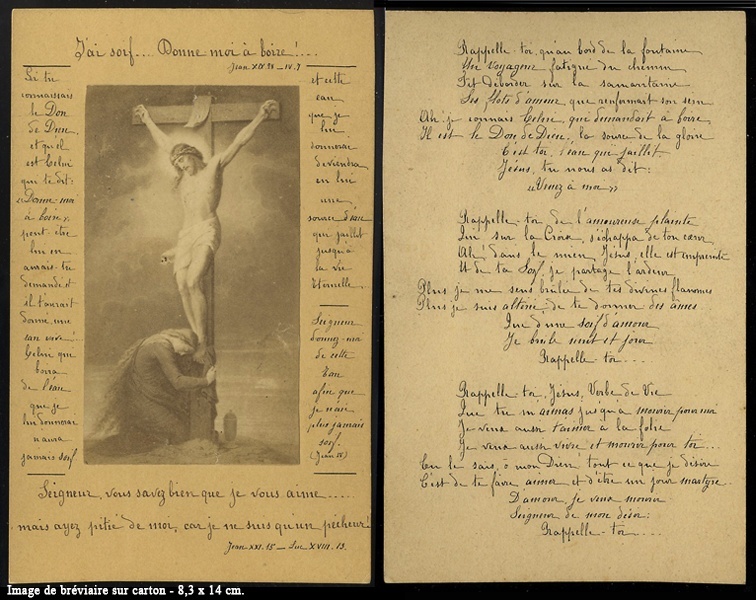 J'ai soif.... Donne moi à boire!....
Jean XIX.28 - IV.7
Si tu
connaissais
le Don
de Dieu,
et quel
est Celui
qui te dit:
«Donne-moi
à boire».
peut-être
lui en
aurais-tu
demandé et
il t'aurait
donné, une
eau vive!..
Celui qui
boira
de l'eau
que je
lui donnerai
n'aura
jamais soif
et cette
eau
que je
lui
donnerai
deviendra
en lui
une
source d'eau
qui jaillit
jusqu'à
la vie
éternelle.
Seigneur
donnez-moi
de cette
Eau
afin que
je n'aie
plus jamais
soif.
(Jean IV)
Seigneur, vous savez bien que je vous aime.....
mais ayez pitié de moi, car je ne suis qu'un pécheur!
Jean XXI.15 - Luc XVIII.13.
Rappelle-toi, qu'au bord de la fontaine
Un Voyageur fatigué du chemin
Fit déborder sur la samaritaine
Les flots d'amour que renfermait son sein
Ah! je connais Celui, qui demandait à boire
Il est le Don de Dieu, la source de la gloire
C'est toi, l'eau qui jaillit.
Jésus, tu nous as dit:
«Venez à moi»
Rappelle-toi de l'amoureuse plainte
Qui sur la Croix, s'échappa de ton cœur
Ah! dans le mien, Jésus, elle est empreinte
Et de ta Soif, je partage l'ardeur
Plus je me sens brûlée de tes divines flammes
Plus je suis altérée de te donner des âmes
Que d'une soif d'amour
Je brûle nuit et jour
Rappelle-toi...
Rappelle-toi, Jésus, Verbe de Vie
Que tu m'aimas jusqu'à mourir pour moi
Je veux aussi t'aimer à la folie
Je veux aussi vivre et mourir pour toi...
Tu le sais, ô mon Dieu! tout ce que je désire
C'est de te faire aimer et d'être un jour martyre.
D'amour, je veux mourir
Seigneur de mon désir:
Rappelle-toi....
Image de bréviaire sur carton - 8,3 x 14 cm.